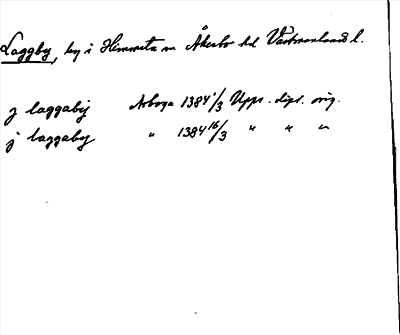 Laggby, by i Himmeta sn Åkerbo hd Västmanlands l.
j laggabij Arboga 1384 1/3 Upps. dipl. orig.
j laggaby " 1384 16/3 " " "